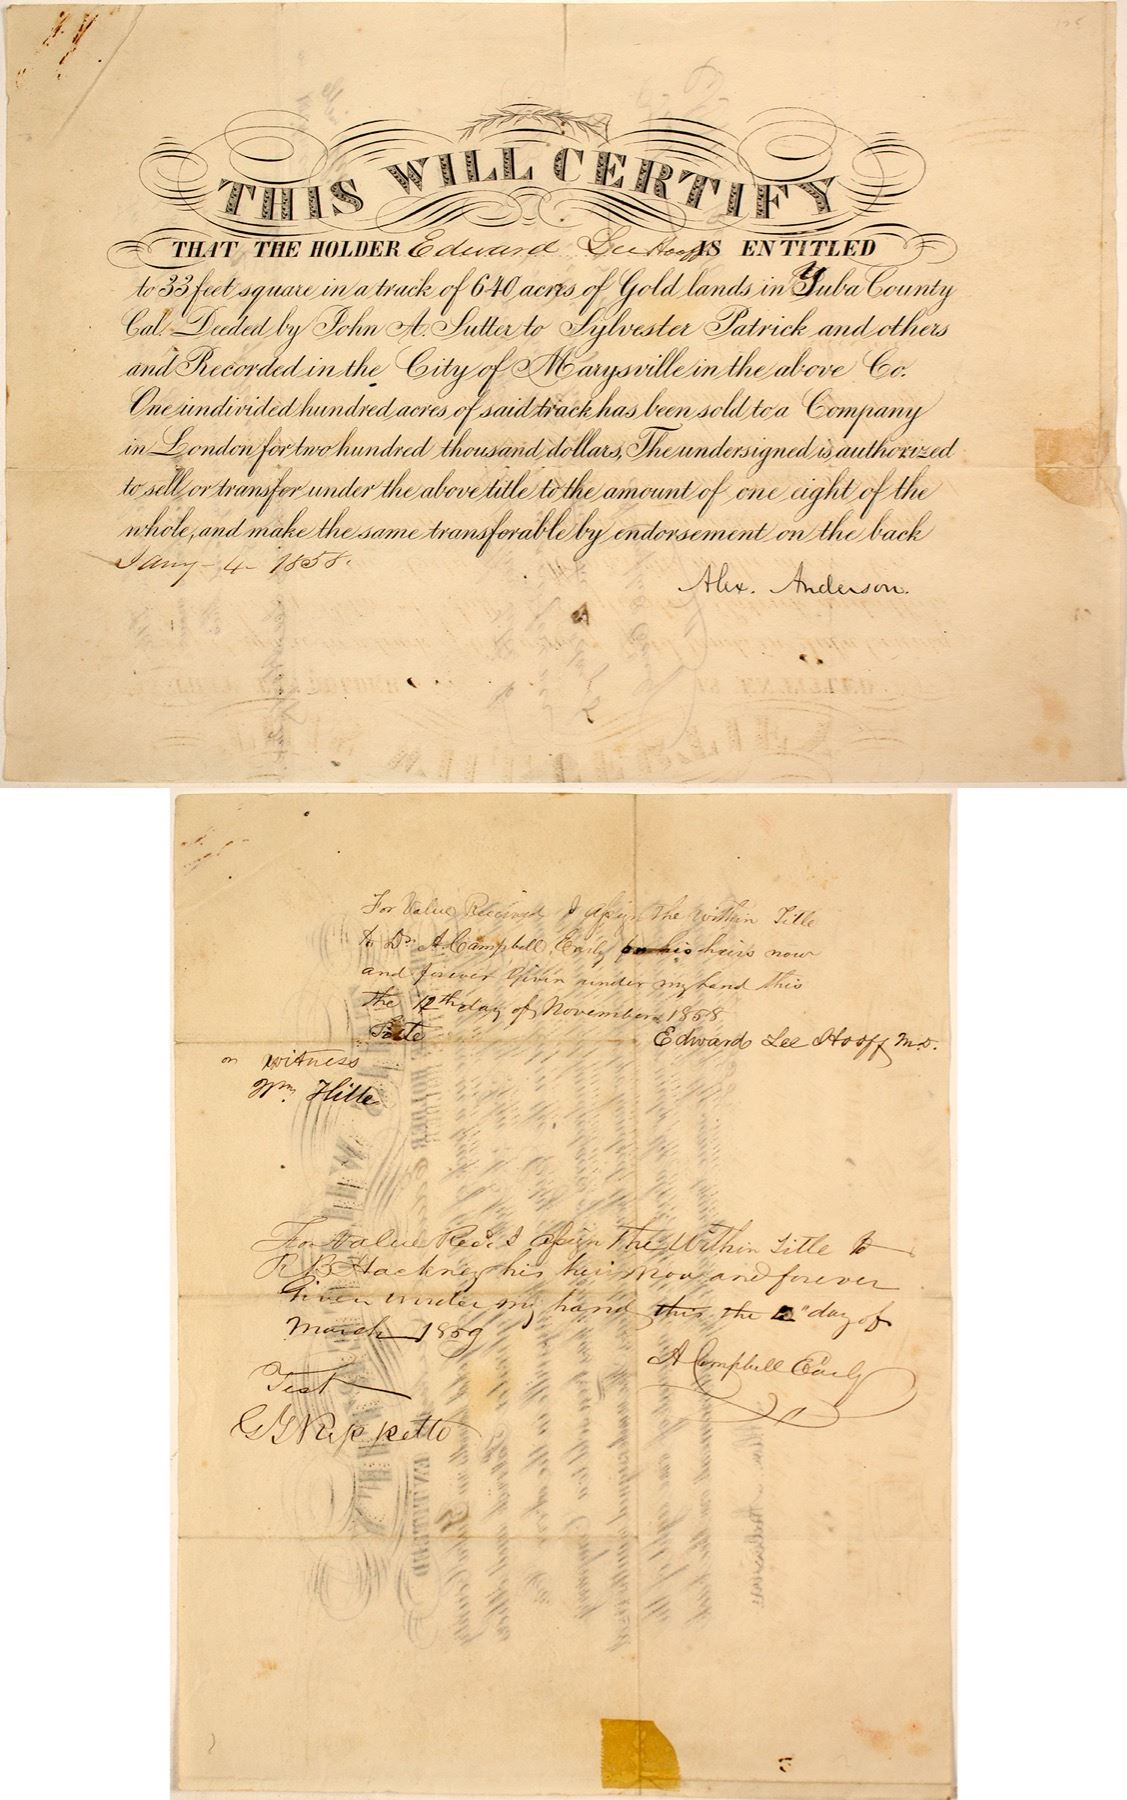 THIS WILL CERTIFY
THAT THE HOLDER Edward Lee Hooff IS ENTITLED
to 33 feet square in a track of 640 acres of Gold lands in Yuba County
Cal. Deeded by John A. Sutter to Sylvester Patrick and others
and Recorded in the City of Marysville in the above Co.
One undivided hundred acres of said track has been sold to a Company
in London for two hundred thousand dollars, The undersigned is authorized
to sell or transfer under the above title to the amount of one eight of the
whole, and make the same transferable by endorsement on the back
Jany - 4 - 1858.
Alex. Anderson.
For Value Received I assign the within Title
to Dr A. Campbell Early his heirs now
and forever Given under my hand this
the 12th day of November 1858
Edward Lee Hooff M.D.
or witness
Wm Hitte
For Value Recd. I assign The Within Title to
R B Hackney his heirs now and forever
Given under my hand this the " day of
March 1859
A Campbell Early
Test